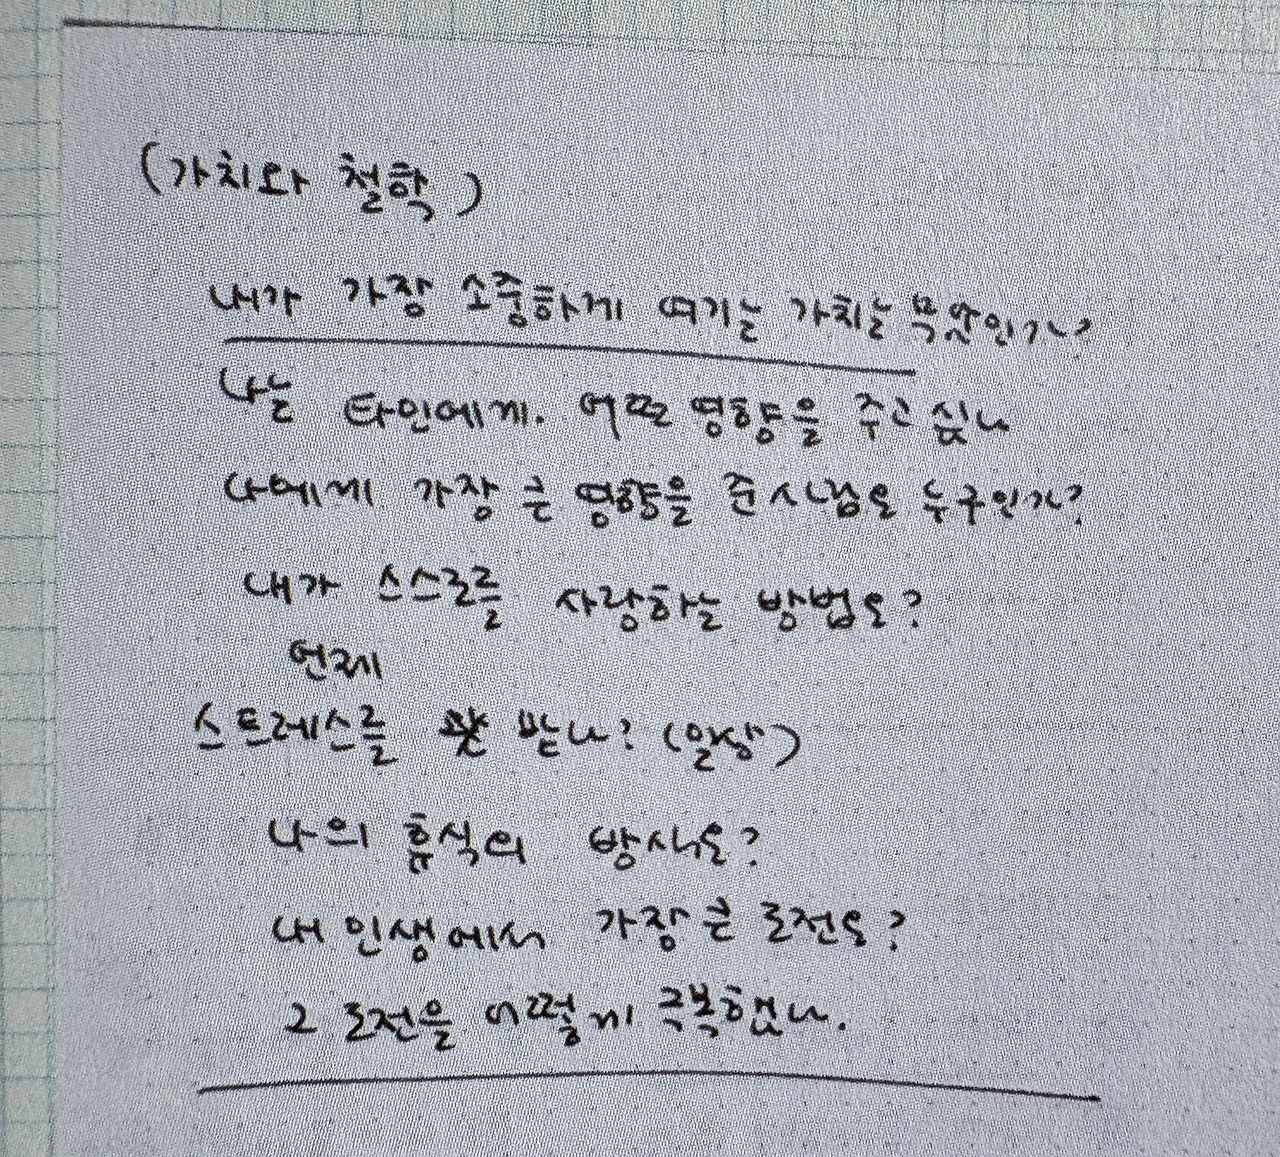 (가치와 철학)
내가 가장 소중하게 여기는 가치는 무엇인가?
나는 타인에게. 어떤 영향을 주고 싶나
나에게 가장 큰 영향을 준 사람은 누구인가?
내가 스스로를 사랑하는 방법은?
언제
스트레스를 받나? (일상)
나의 휴식의 방식은?
내 인생에서 가장 큰 도전은?
그 도전을 어떻게 극복했나.